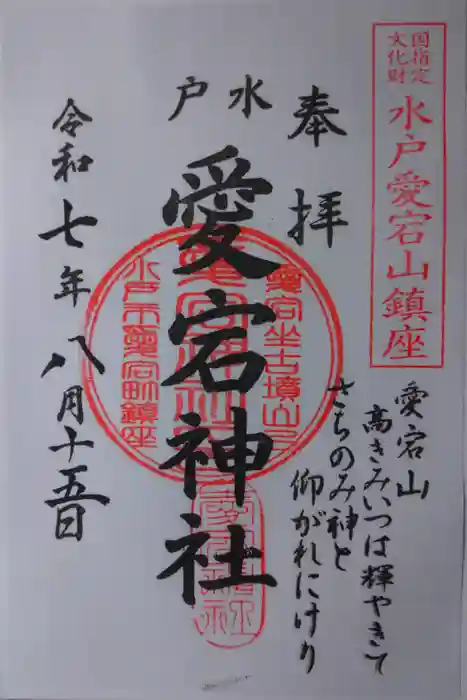 国指定
文化財
水戸愛宕山鎮座
愛宕山
高きみいつは輝やきて
さちのみ神と
仰がれにけり
奉拝
水戸
愛宕神社
愛宕坐古墳山
水戸市愛宕町鎮座
愛宕神社
令和七年八月十五日